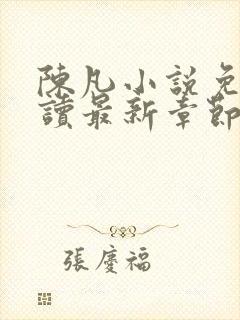 陳凡小說免
讀最新章節
張慶福